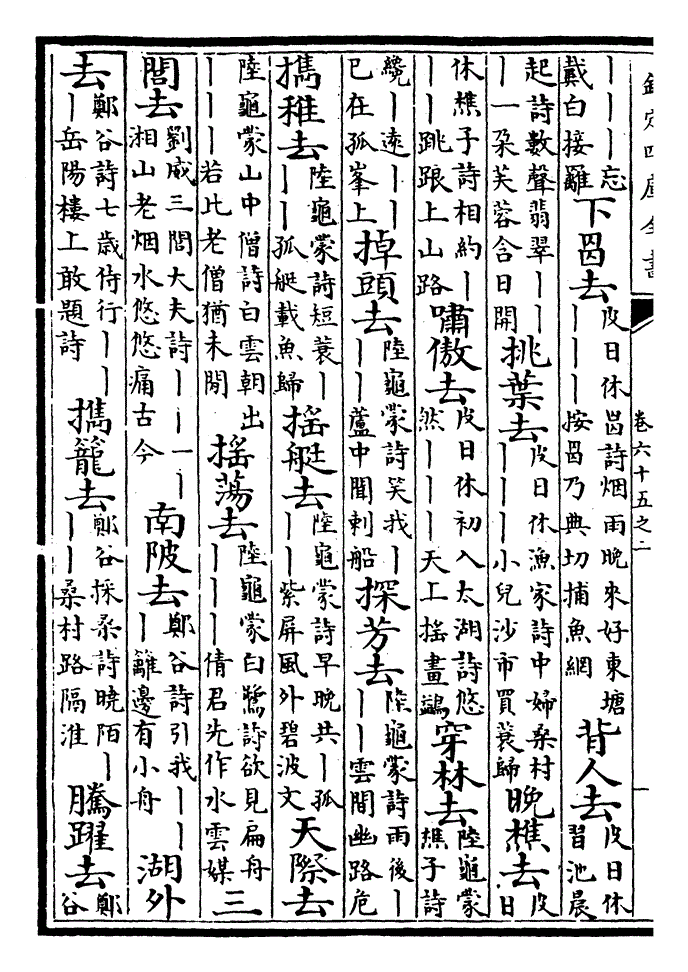 欽定四庫全書 卷六十五之二
｜｜｜忘戴白接䍦下罶去皮日休罶詩烟雨晚來好東塘｜｜｜按罶乃典切捕魚網背人去皮日休習池晨
起詩數聲翡翠｜｜｜一朶芙蓉含日開挑葉去皮日休漁家詩中婦桑村｜｜｜小兒沙市買蓑歸晚樵去皮日
休樵子詩相約｜｜｜跳踉上山路嘯傲去皮日休初入太湖詩悠然｜｜｜天工搖畫鷁穿林去陸龜蒙樵子詩
纔｜遠｜｜已在孤峯上掉頭去陸龜蒙詩笑我｜｜｜蘆中聞刺船探芳去陸龜蒙詩雨後｜｜｜雲間幽路危
攜稚去陸龜蒙詩短蓑｜｜｜孤艇載魚歸搖艇去陸龜蒙詩早晚共｜孤｜｜紫屏風外碧波文天際去
陸龜蒙山中僧詩白雲朝出｜｜｜若比老僧猶未閒搖蕩去陸龜蒙白鷺詩欲見扁舟｜｜｜倩君先作水雲媒三
閭去劉威三閭大夫詩｜｜｜一｜湘山老烟水悠悠痛古今南陂去鄭谷詩引我｜｜｜籬邊有小舟湖外
去鄭谷詩七歲侍行｜｜｜岳陽樓上敢題詩攜籠去鄭谷採桑詩曉陌｜｜｜桑村路隔淮騰躍去鄭谷